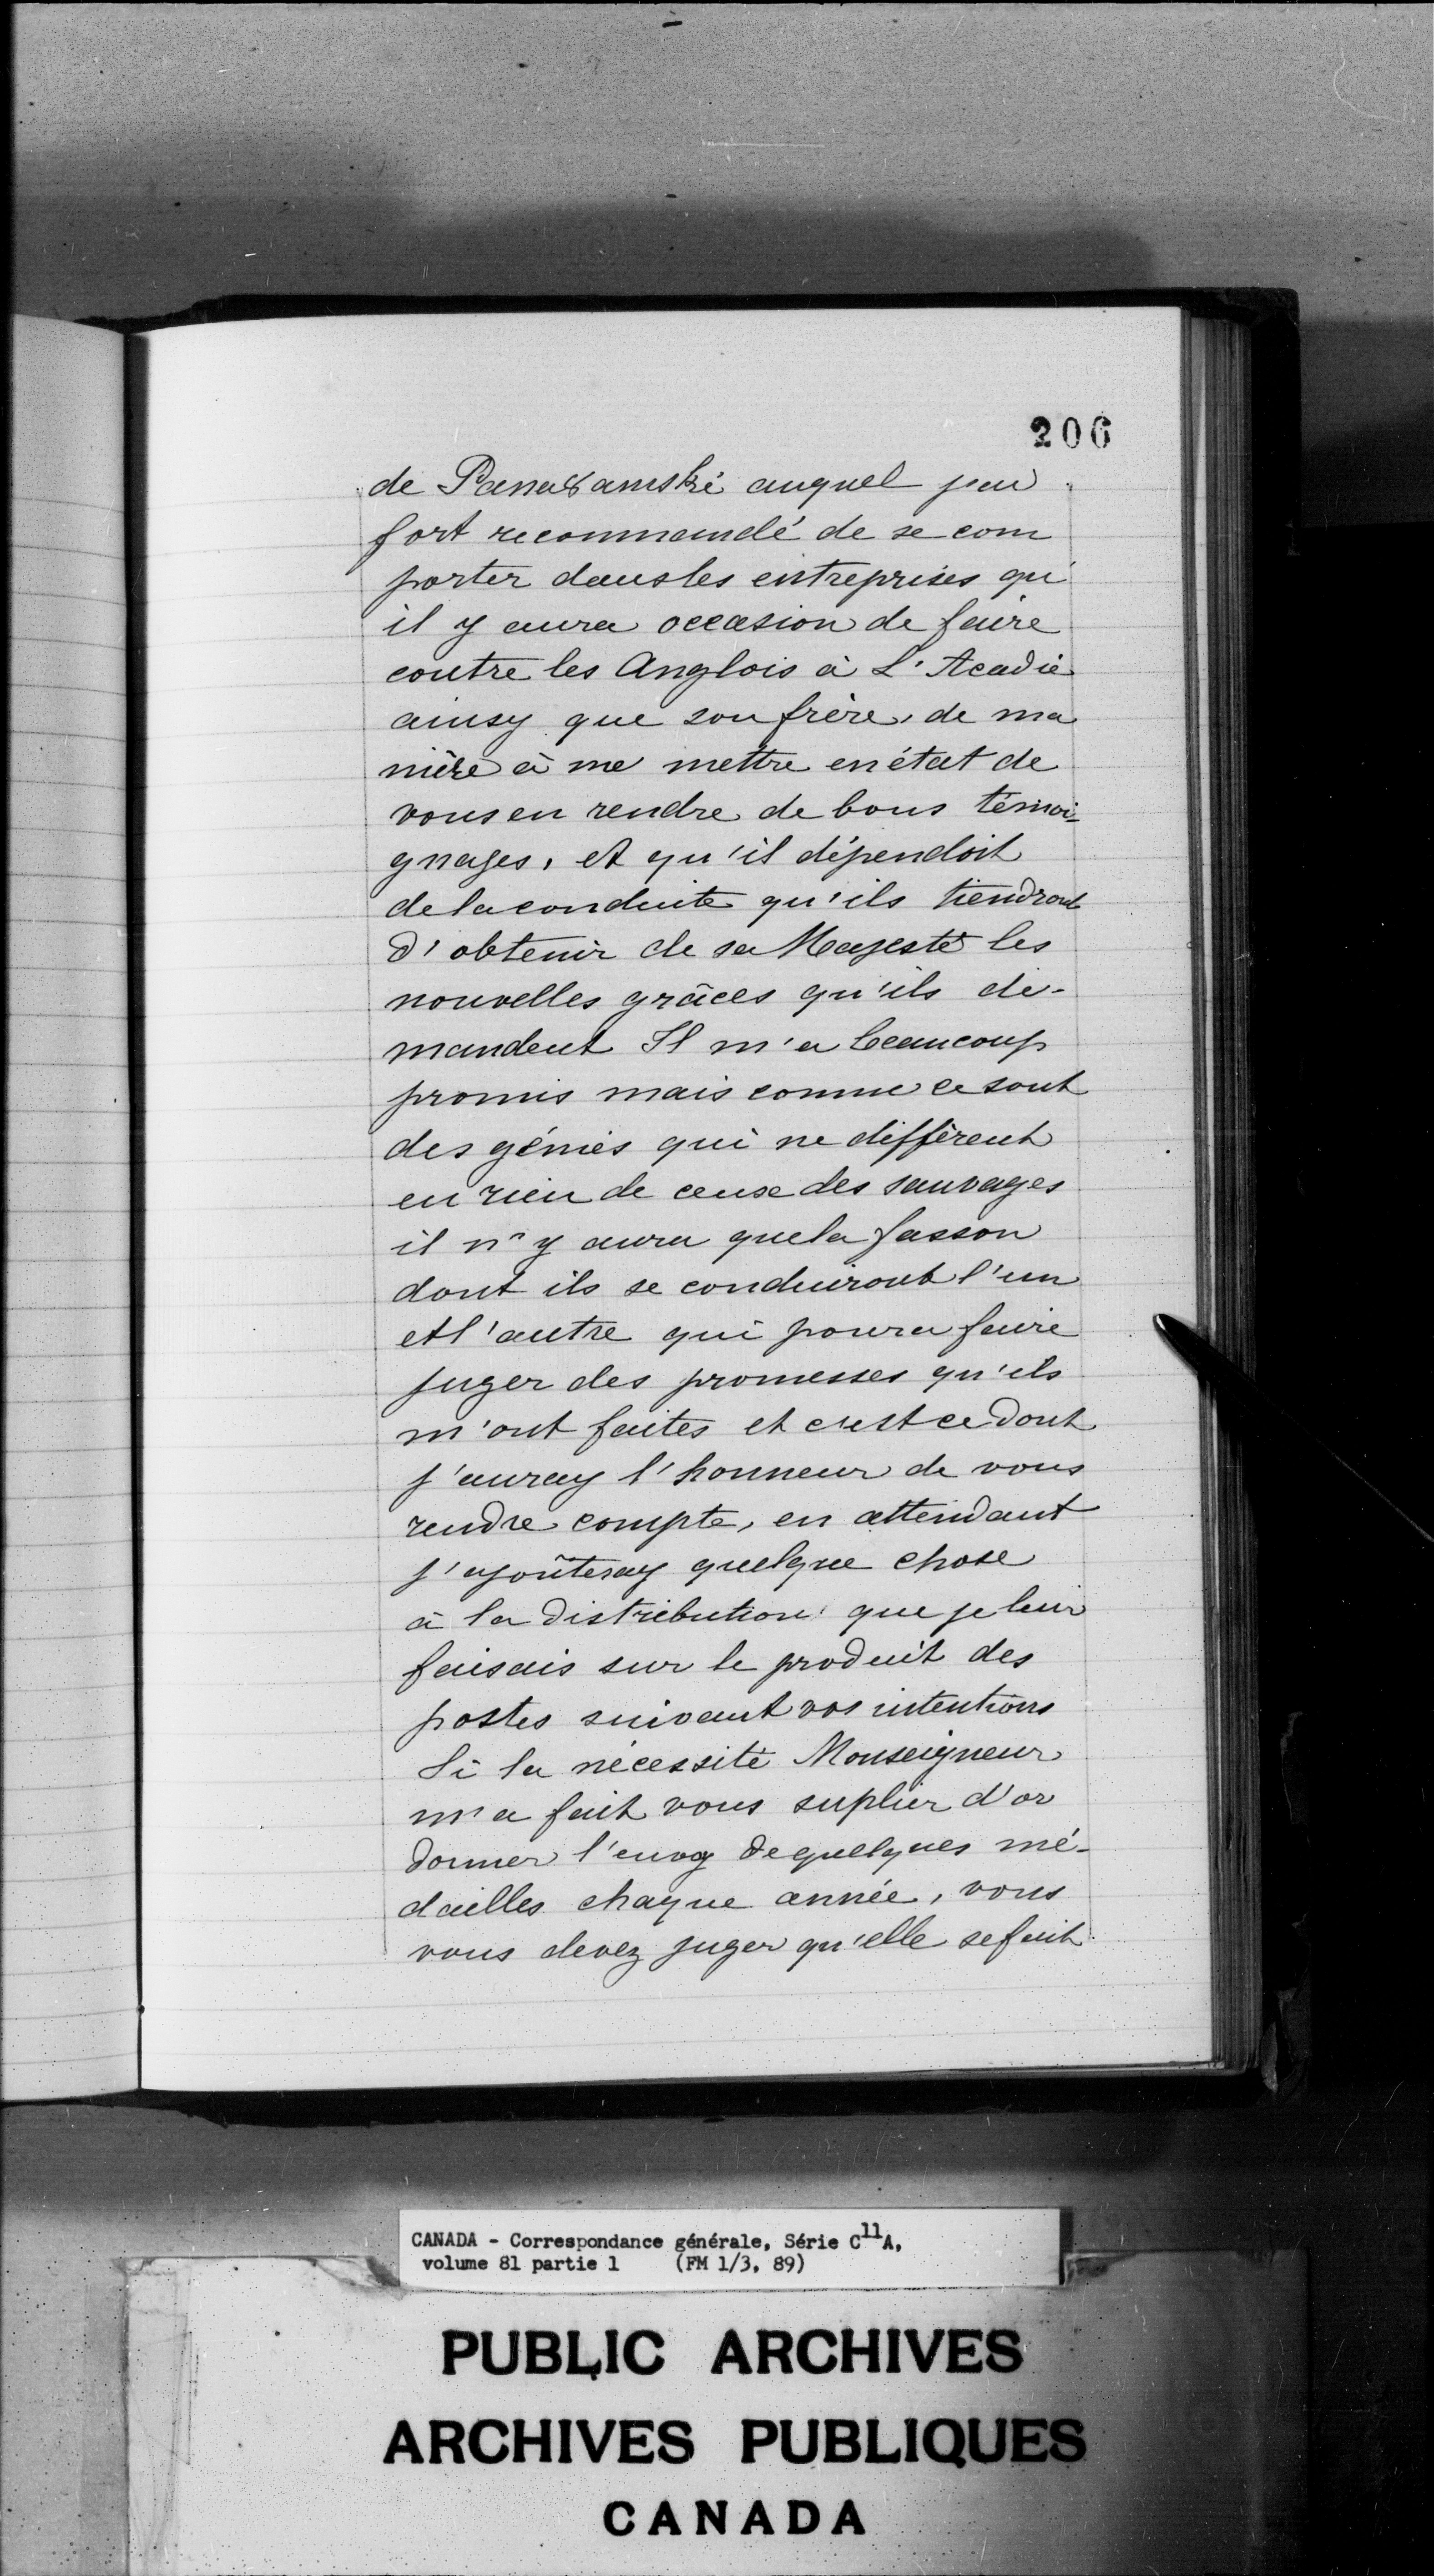 206
de Pana8amské auquel j'eus
fort recommandé de se com
porter dans les entreprises qu'
il y aura occasion de faire
contre les Anglois à L'Acadie
ainsy que son frère, de ma
nière à me mettre en état de
vous en rendre de bons témoi-
gnages, et qu'il dépendoit
de la conduite qu'ils tiendront
d'obtenir de sa Majesté les
nouvelles grâces qu'ils de-
mandent Il m'a beaucoup
promis mais comme ce sont
des génies qui ne diffèrent
en rien de ceux des sauvages
il n'y aura que la fasson
dont ils se conduiront l'un
et l'autre qui poura faire
juger des promesses qu'ils
m'ont faites et c'est ce dont
j'auray l'honneur de vous
rendre compte, en attendant
j'ajoûteray quelque chose
à la distribution que je leur
faisais sur le produit des
postes suivant vos intentions
Si la nécessité Monseigneur
m'a fait vous suplier d'or
donner l'envoy de quelques mé-
dailles chaque année, vous
vous devez juger qu'elle se fait
CANADA - Correspondance générale, Série C11A,
volume 81 partie 1 (FM 1/3, 89)
PUBLIC ARCHIVES
ARCHIVES PUBLIQUES
CANADA